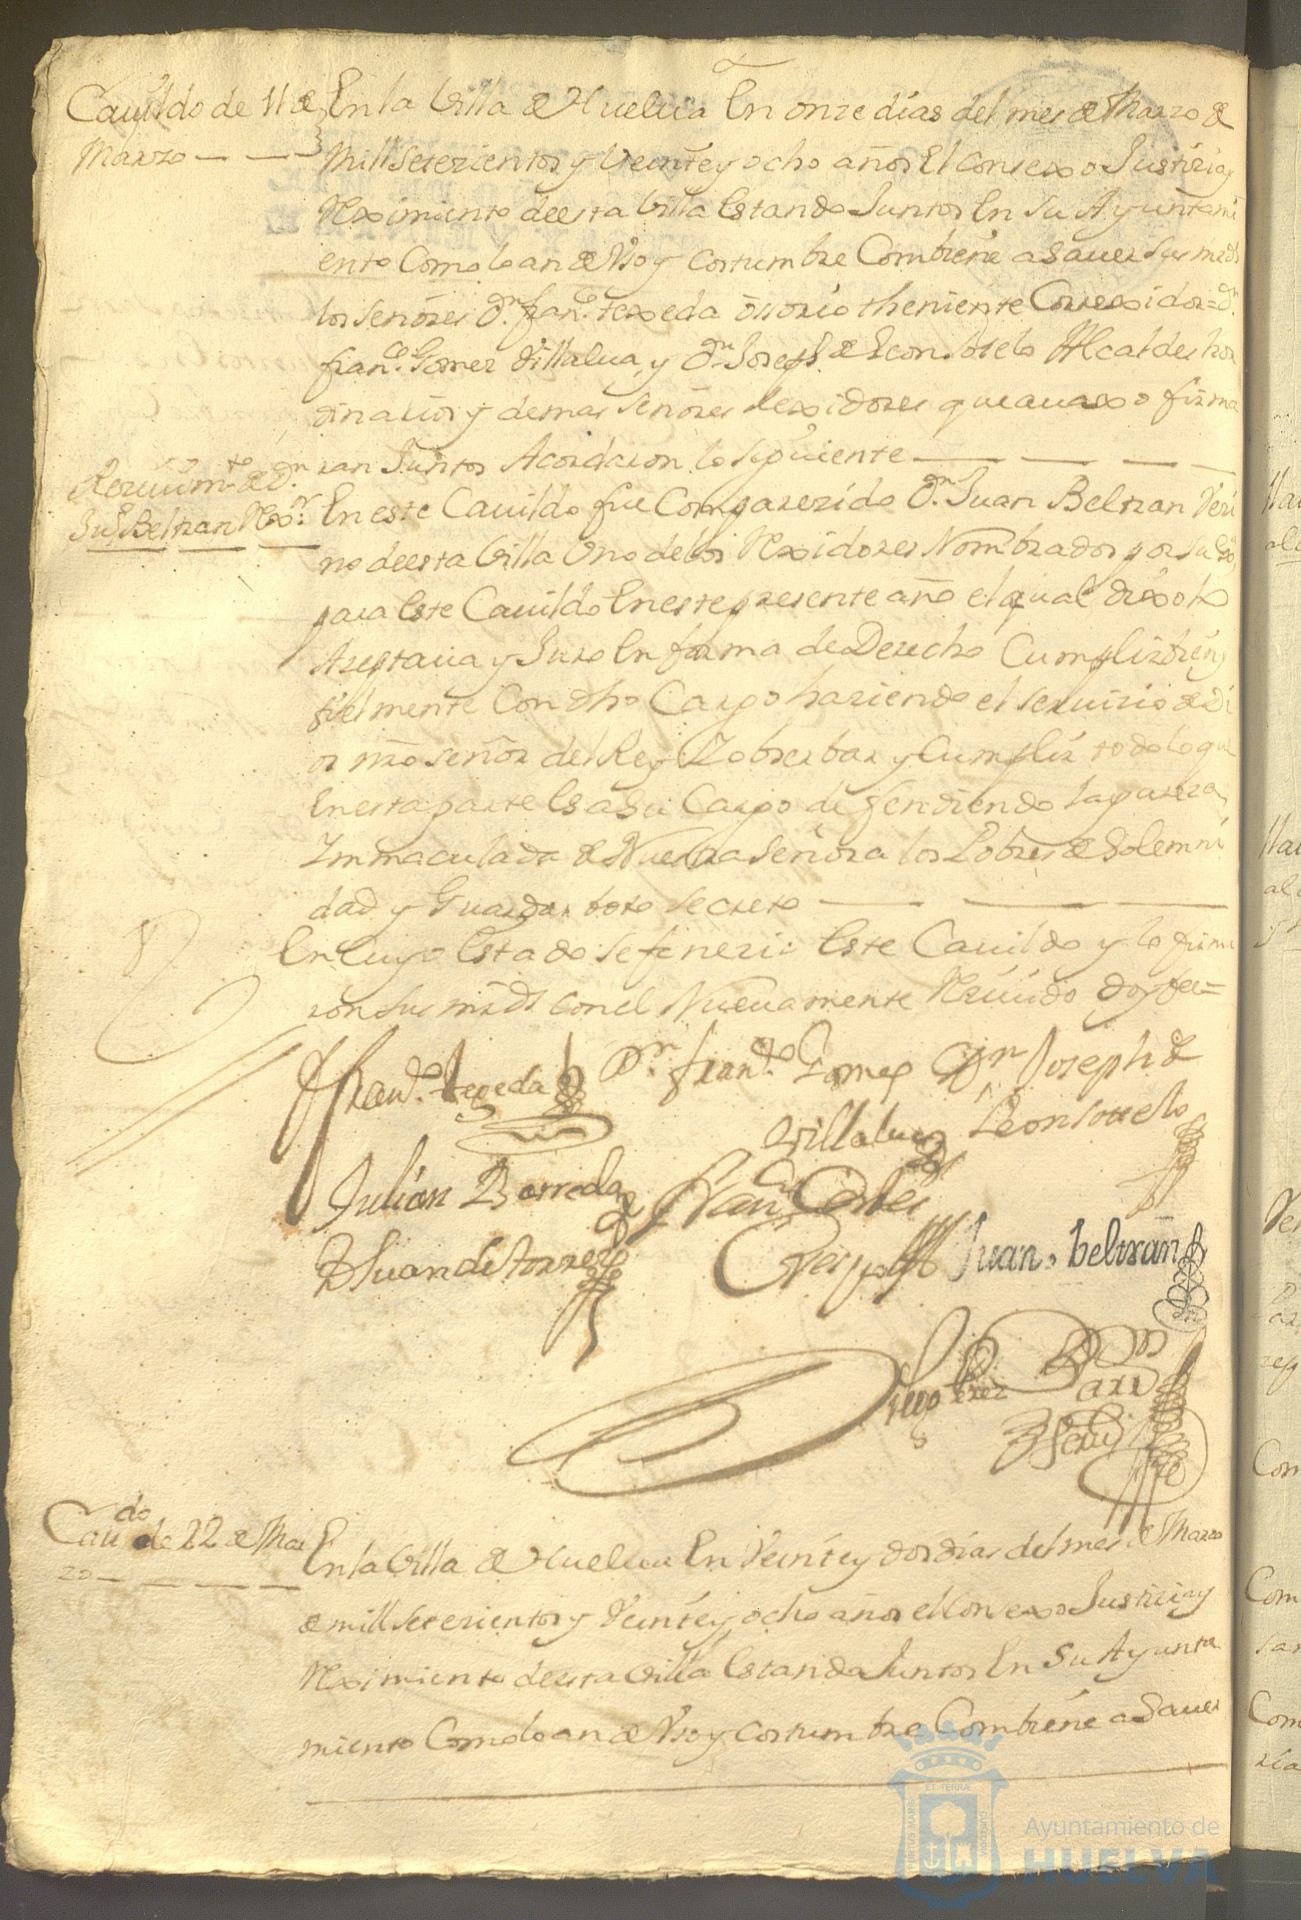 Cauildo de 11 de
Marzo
En la Villa de Huelua En onze días del mes de Marzo de
Mill Setezientos y Veinte y ocho años El Consexo Justizia y
Reximiento de esta Villa Estando Juntos En Su Ayuntami
ento Como lo an de Vso y Costumbre Combiene a Sauer Sus mrds
los Señores Dn. franco. texeda osorio theniente Correxidor = Dn.
franco. Gomez Villalua, y Dn. Joseph de Leon Sotelo Alcaldes hor
dinarios y demas Señores Rexidores que auaxo firma
ran Juntos Acordaron lo siguiente
Reziuimto. de Dn.
Jun. Beltran Rexor.
En este Cauildo fue Comparezido Dn. Juan Beltran Vezi
no de esta Villa Vno de los Rexidores Nombrados por su Exa.
para Este Cauildo En este presente año el qual dixo lo
Azeptaua y Juro En forma de Derecho Cumplir bien y
fielmente Con dho Cargo haziendo el seruizio de Di
os nro Señor del Rey Y obserbar y Cumplir todo lo que
En esta parte Es a Su Cargo defendiendo la pureza
Immaculada de Nuestra Señora los Pobres de Solemni
dad y Guardar boto Secreto
En Cuyo Estado se fenezio Este Cauildo y lo firma
ron sus mrds con el Nueuamente Rziuido doy fee =
Frando. texeda
Dn. franco. Gomez
Villalua
Dn Joseph de
Leon Sotelo
Julián Borrada
Franco Cortes
Crespo
Juan de torres
Juan. beltrán
Diego Perez
Caudo de 22 de Mar
zo
En la Villa de Huelua En Veinte y dos días del mes de Marzo
de mill Setezientos y Veinte y ocho años el Consexo Justizia y
Reximiento de esta Villa Estando Juntos En Su Ayunta
miento Como lo an de Vso y Costumbre Combiene a Sauer
Ayuntamiento de
HUELVA